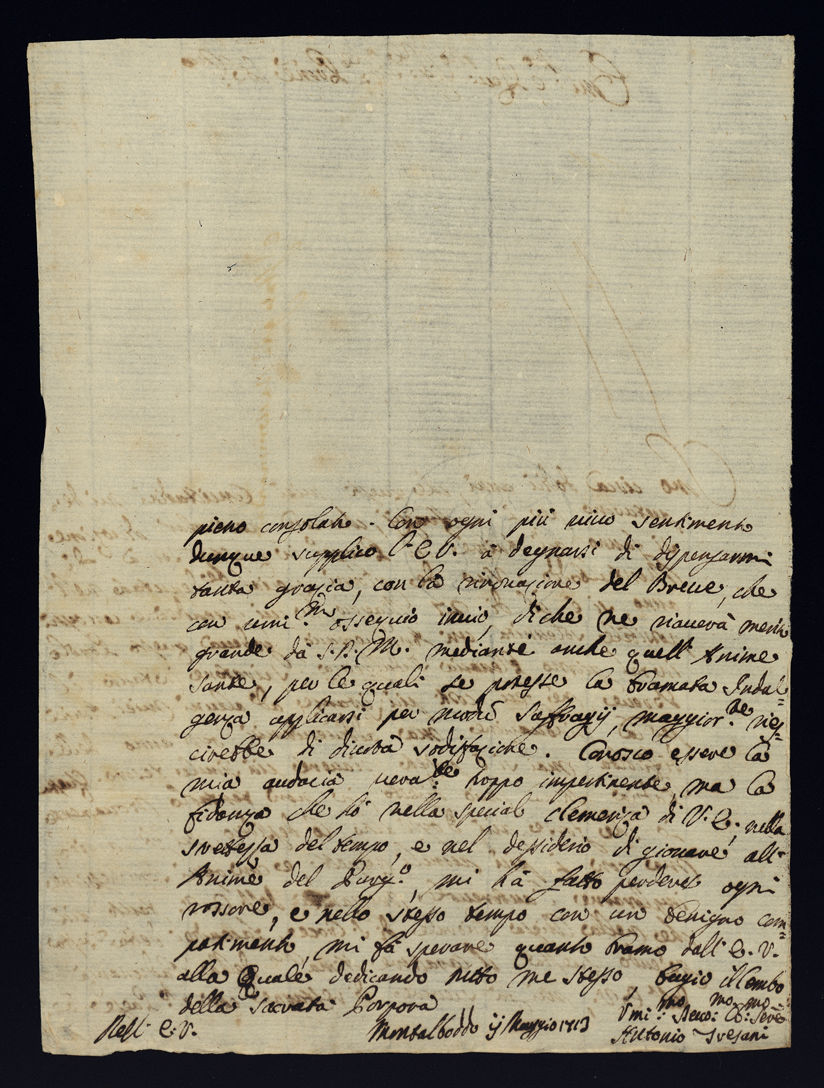 pieno consolato. Con ogni più vivo sentimento
dunque supplico V. E. V. à degnarsi di dispensarmi
tanta grazia, con la rinovazione del Breve, che
con umi.mo ossequio invio, di che ne riceverà merito
grande da S. D. M. mediante anche quell'Anime
Sante, per le quali se potesse la bramata Indul=
genza applicarsi per modũ Suffragij, maggior.te ries=
cirebbe di divota sodisfazione. Conosco essere la
mia audacia vera.te troppo impertinente, ma la
fidanza che hò nella special clemenza di V. E., nella
stretezza del tempo, e nel desiderio di giovare all'
Anime del Purg.o, mi hà fatto perdere ogni
rossore, e nello stesso tempo con un benigno com=
patimento, mi fà sperare quanto bramo dall'E. V.
alla Quale dedicando tutto me stesso, bagio il lembo
della Sacrata Porpora
Dell'E. V.
Montalboddo Maggio 1713
Umi.mo Devo.mo Ob.mo Serv.e
Antonio